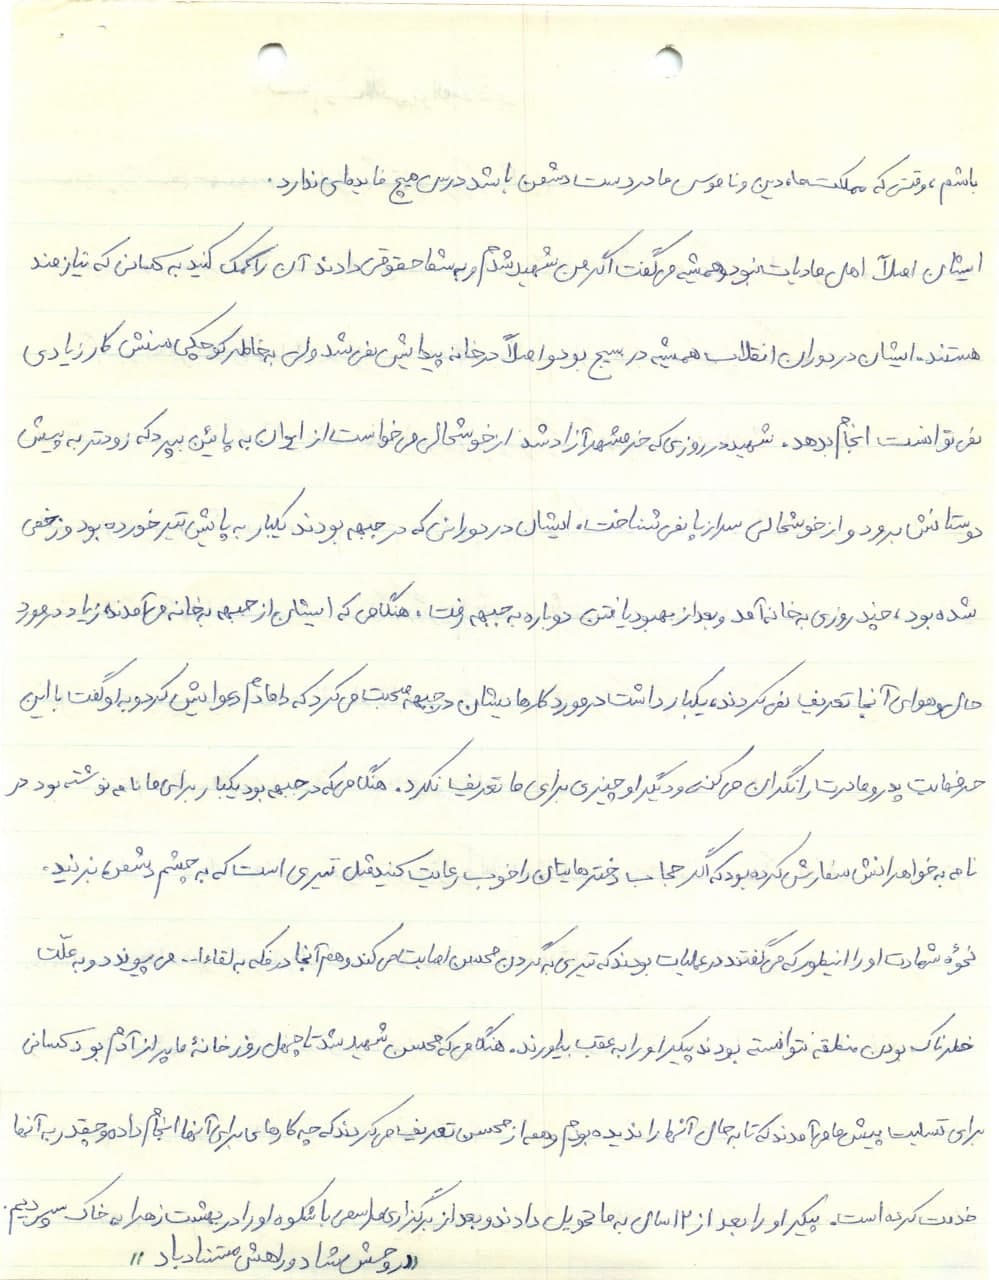 باشم، وقتی که مملکت ما، دین و ناموس ما در دست دشمن باشد درس هیچ فایده‌ای ندارد.
ایشان اصلاً اهل مادیات نبود و همیشه می‌گفت اگر من شهید شدم و به شما حقوقی دادند آن را کمک کنید به کسانی که نیازمند
هستند. ایشان در دوران انقلاب همیشه در بسیج بود و اصلاً در خانه پیدایش نمی‌شد ولی به خاطر کوچکی سنش کار زیادی
نمی‌توانست انجام بدهد. شهید در روزی که خرمشهر آزاد شد از خوشحالی می‌خواست از ایوان به پائین بپرد که زودتر به پیش
دوستانش برود و از خوشحالی سر از پا نمی‌شناخت. ایشان در دورانی که در جبهه بودند یکبار به پایش تیر خورده بود و زخمی
شده بود، چند روزی به خانه آمد و بعد از بهبود یافتن دوباره به جبهه رفت. هنگامی که ایشان از جبهه به خانه می‌آمدند زیاد در مورد
حال و هوای آنجا تعریف نمی‌کردند، یکبار داشت در مورد کارهایشان در جبهه صحبت می‌کرد که دامادم دعوایش کرد و به او گفت با این
حرفهایت پدر و مادرت را نگران می‌کنی و دیگر او چیزی برای ما تعریف نکرد. هنگامی که در جبهه بود یکبار برای ما نامه نوشته بود در
نامه به خواهرانش سفارش کرده بود که اگر حجاب دخترهایتان را خوب رعایت کنید مثل تیری است که به چشم دشمن بزنید.
نحوهٔ شهادت او را اینطور که می‌گفتند در عملیات بودند که تیری به گردن محسن اصابت می‌کند و هم آنجا در فکه به لقاءا... می‌پیوندد و به علّت
خطرناک بودن منطقه نتوانسته بودند پیکر او را به عقب بیاورند. هنگامی که محسن شهید شد تا چهل روز خانهٔ ما پر از آدم بود کسانی
برای تسلیت پیش ما می‌آمدند که تا به حال آنها را ندیده بودم و همه از محسن تعریف می‌کردند که چه کارهایی برای آنها انجام داده و چقدر به آنها
خدمت کرده است. پیکر او را بعد از ۱۲ سال به ما تحویل دادند و بعد از برگزاری مراسمی باشکوه او را در بهشت زهرا به خاک سپردیم.
«روحش شاد و راهش مستدام باد»